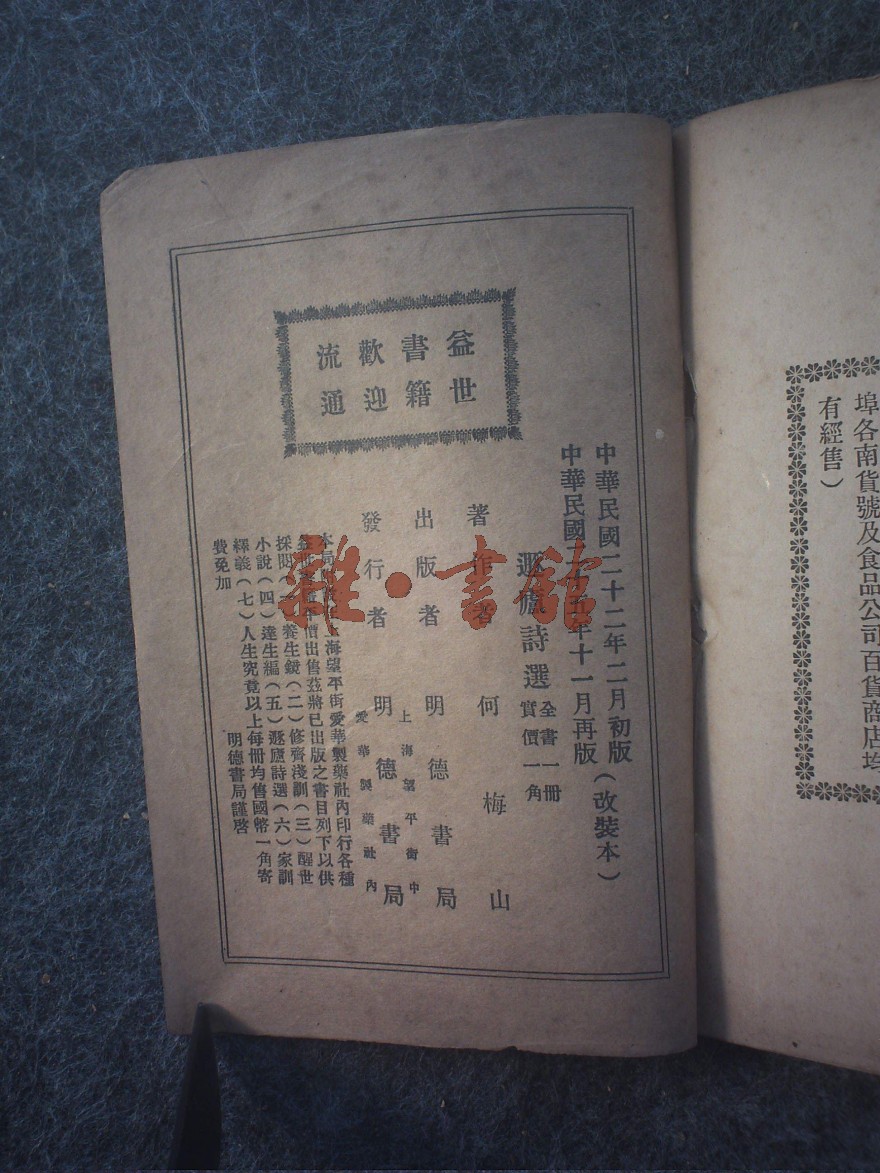 埠各南貨號及食品公司百貨商店均
有經售）
益世
書籍
歡迎
流通
中華民國二十二年二月初版（改裝本）
中華民國二十五年十一月再版
遯廬詩選 全書一冊
實價一角
著作者 何梅山
出版者 明德書局
上海望平街中
發行者 明德書局
愛華製藥社內
本局 海望平街愛華製藥社內印行各種
平價出售茲將已出版之書目列下以供
採閱（一）養生鏡（二）修齊淺訓（三）醒世
小說（四）達生編（五）遯廬詩選（六）家訓
釋義（七）人生究竟以上每冊均售國幣一角寄
費免加
明德書局謹啓
雜·書館